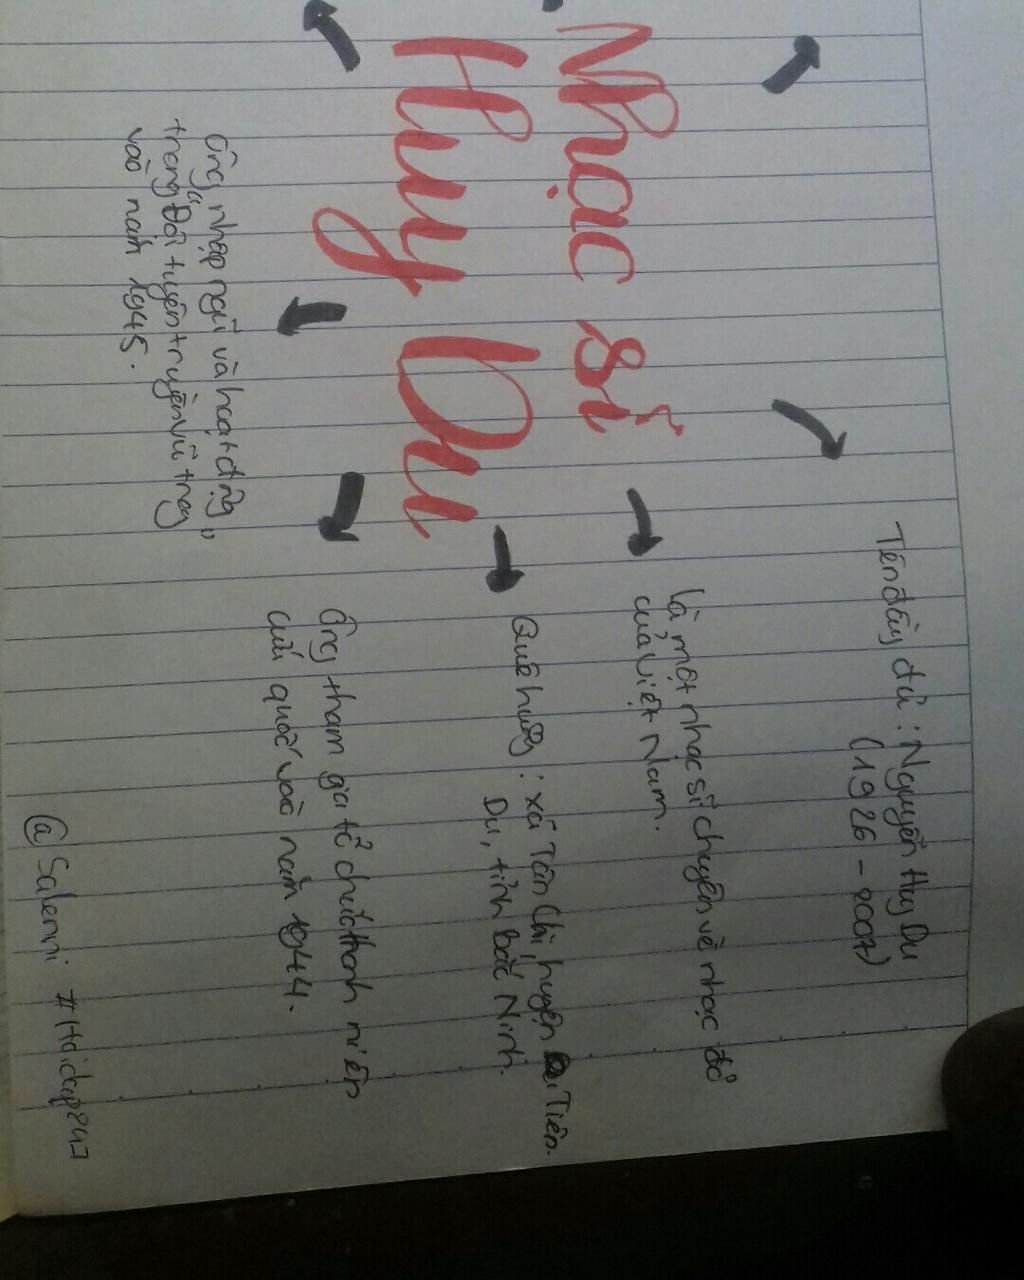 Nhạc sĩ
Huy Du
Tên đầy đủ : Nguyễn Huy Du
(1926 - 2007)
là một nhạc sĩ chuyên về nhạc đỏ
của Việt Nam.
Quê hương : xã Tân Chi, huyện Tiên
Du, tỉnh Bắc Ninh.
Ông tham gia tổ chức thanh niên
cứu quốc vào năm 1944.
Ông nhập ngũ và hoạt động
trong "Đội tuyên truyền vũ trang"
vào năm 1945.
@Salenni #Hdidap247